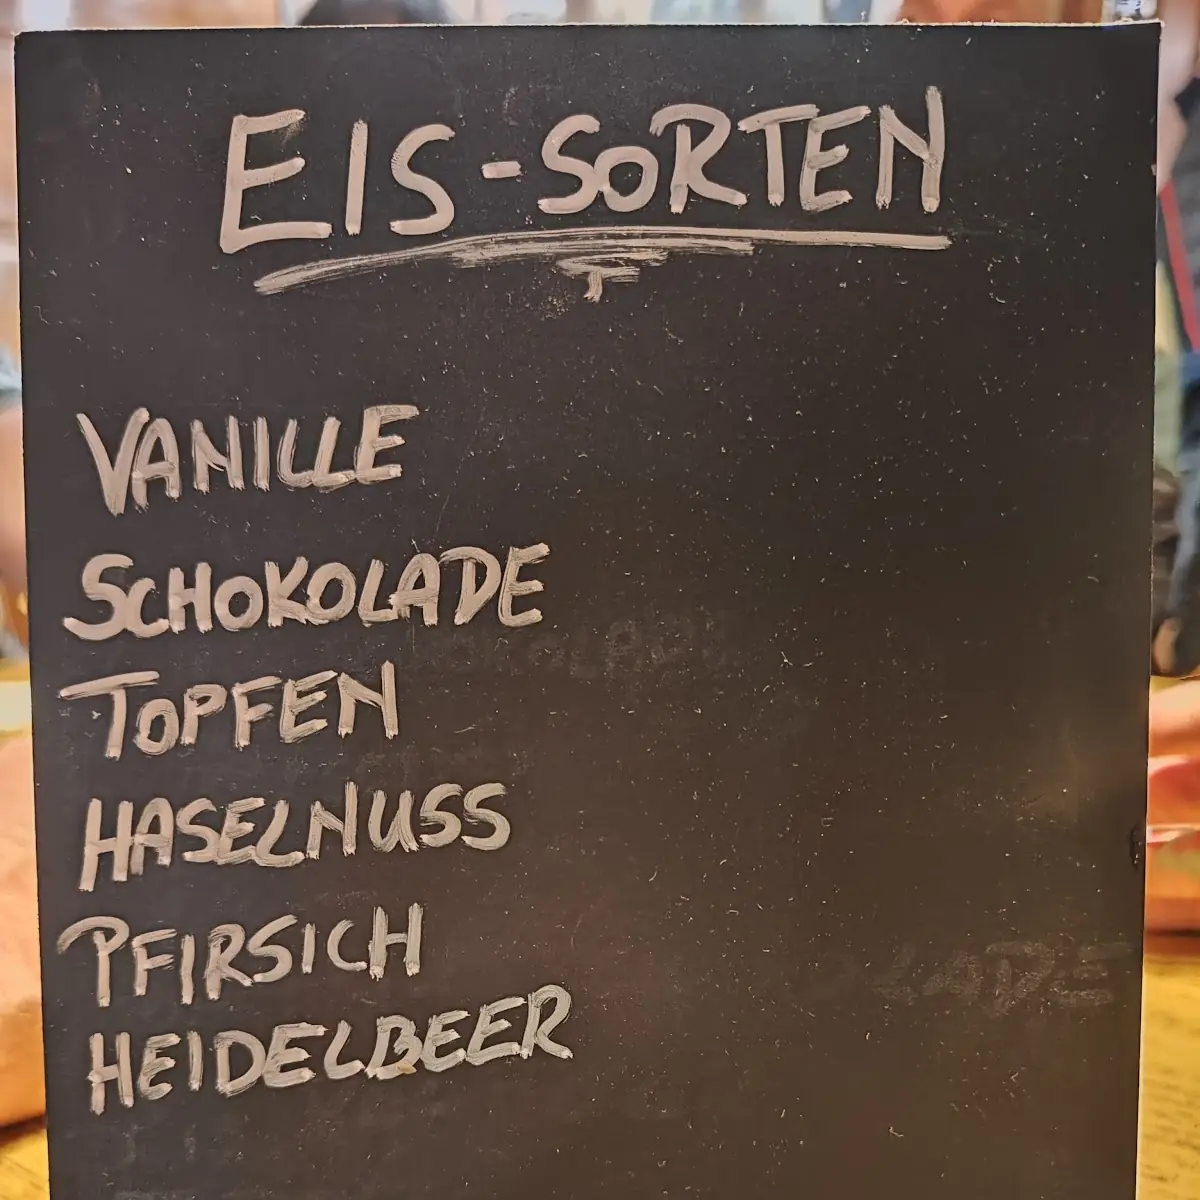 EIS-SORTEN
VANILLE
SCHOKOLADE
TOPFEN
HASELNUSS
PFIRSICH
HEIDELBEER